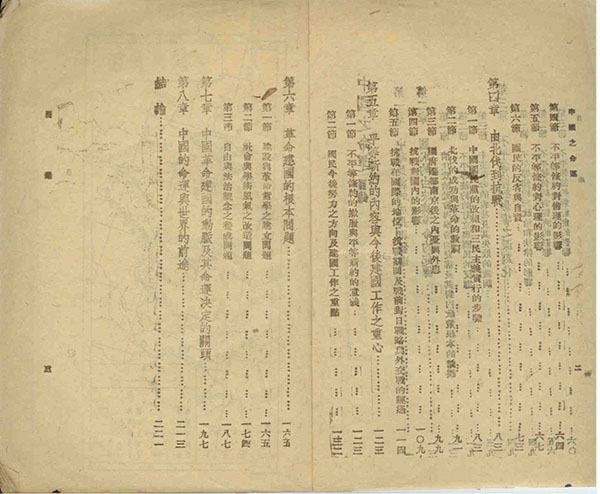 中國之命運 二
六〇
第四節 不平等條約對倫理的影響 六四
第五節 不平等條約對心理的影響 六七
第六節 國民的反省與自責 七三
第四章 由北伐到抗戰 八三
第一節 中國國民黨的改組和三民主義實行的步驟 八三
第二節 北伐的成功與革命的教訓 九一
第三節 國府建都南京後之內憂與外患 九九
第四節 抗戰對國內的影響 一〇九
第五節 抗戰在國際的地位 抗戰範圍及戰前對日戰略與外交戰的經過 一一四
第五章 平等新約的內容與今後建國工作之重心 一二三
第一節 不平等條約的撤廢與平等新約的意義 一二三
第二節 國民今後努力之方向及建國工作之重點 一三二
第六章 革命建國的根本問題 一六五
第一節 建設與革命哲學之建立問題 一六五
第二節 社會與學術風氣之改造問題 一七四
第三節 自由與法治觀念之養成問題 一八七
第七章 中國革命建國的動脈及其命運決定的關頭 一九七
第八章 中國的命運與世界的前途 二一三
結論 二二一